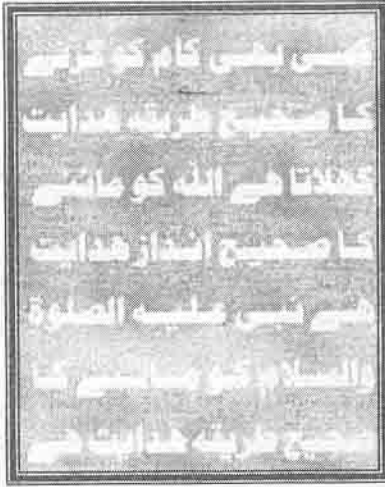 کسی بھی کام کو کرنے
کا صحیح طریقہ ھدایت
کھلاتا ھے اللہ کو ماننے
کا صحیح انداز ھدایت
ھے نبی علیہ الصلوۃ
والسلام کو ماننے کا
صحیح طریقہ ھدایت ھے